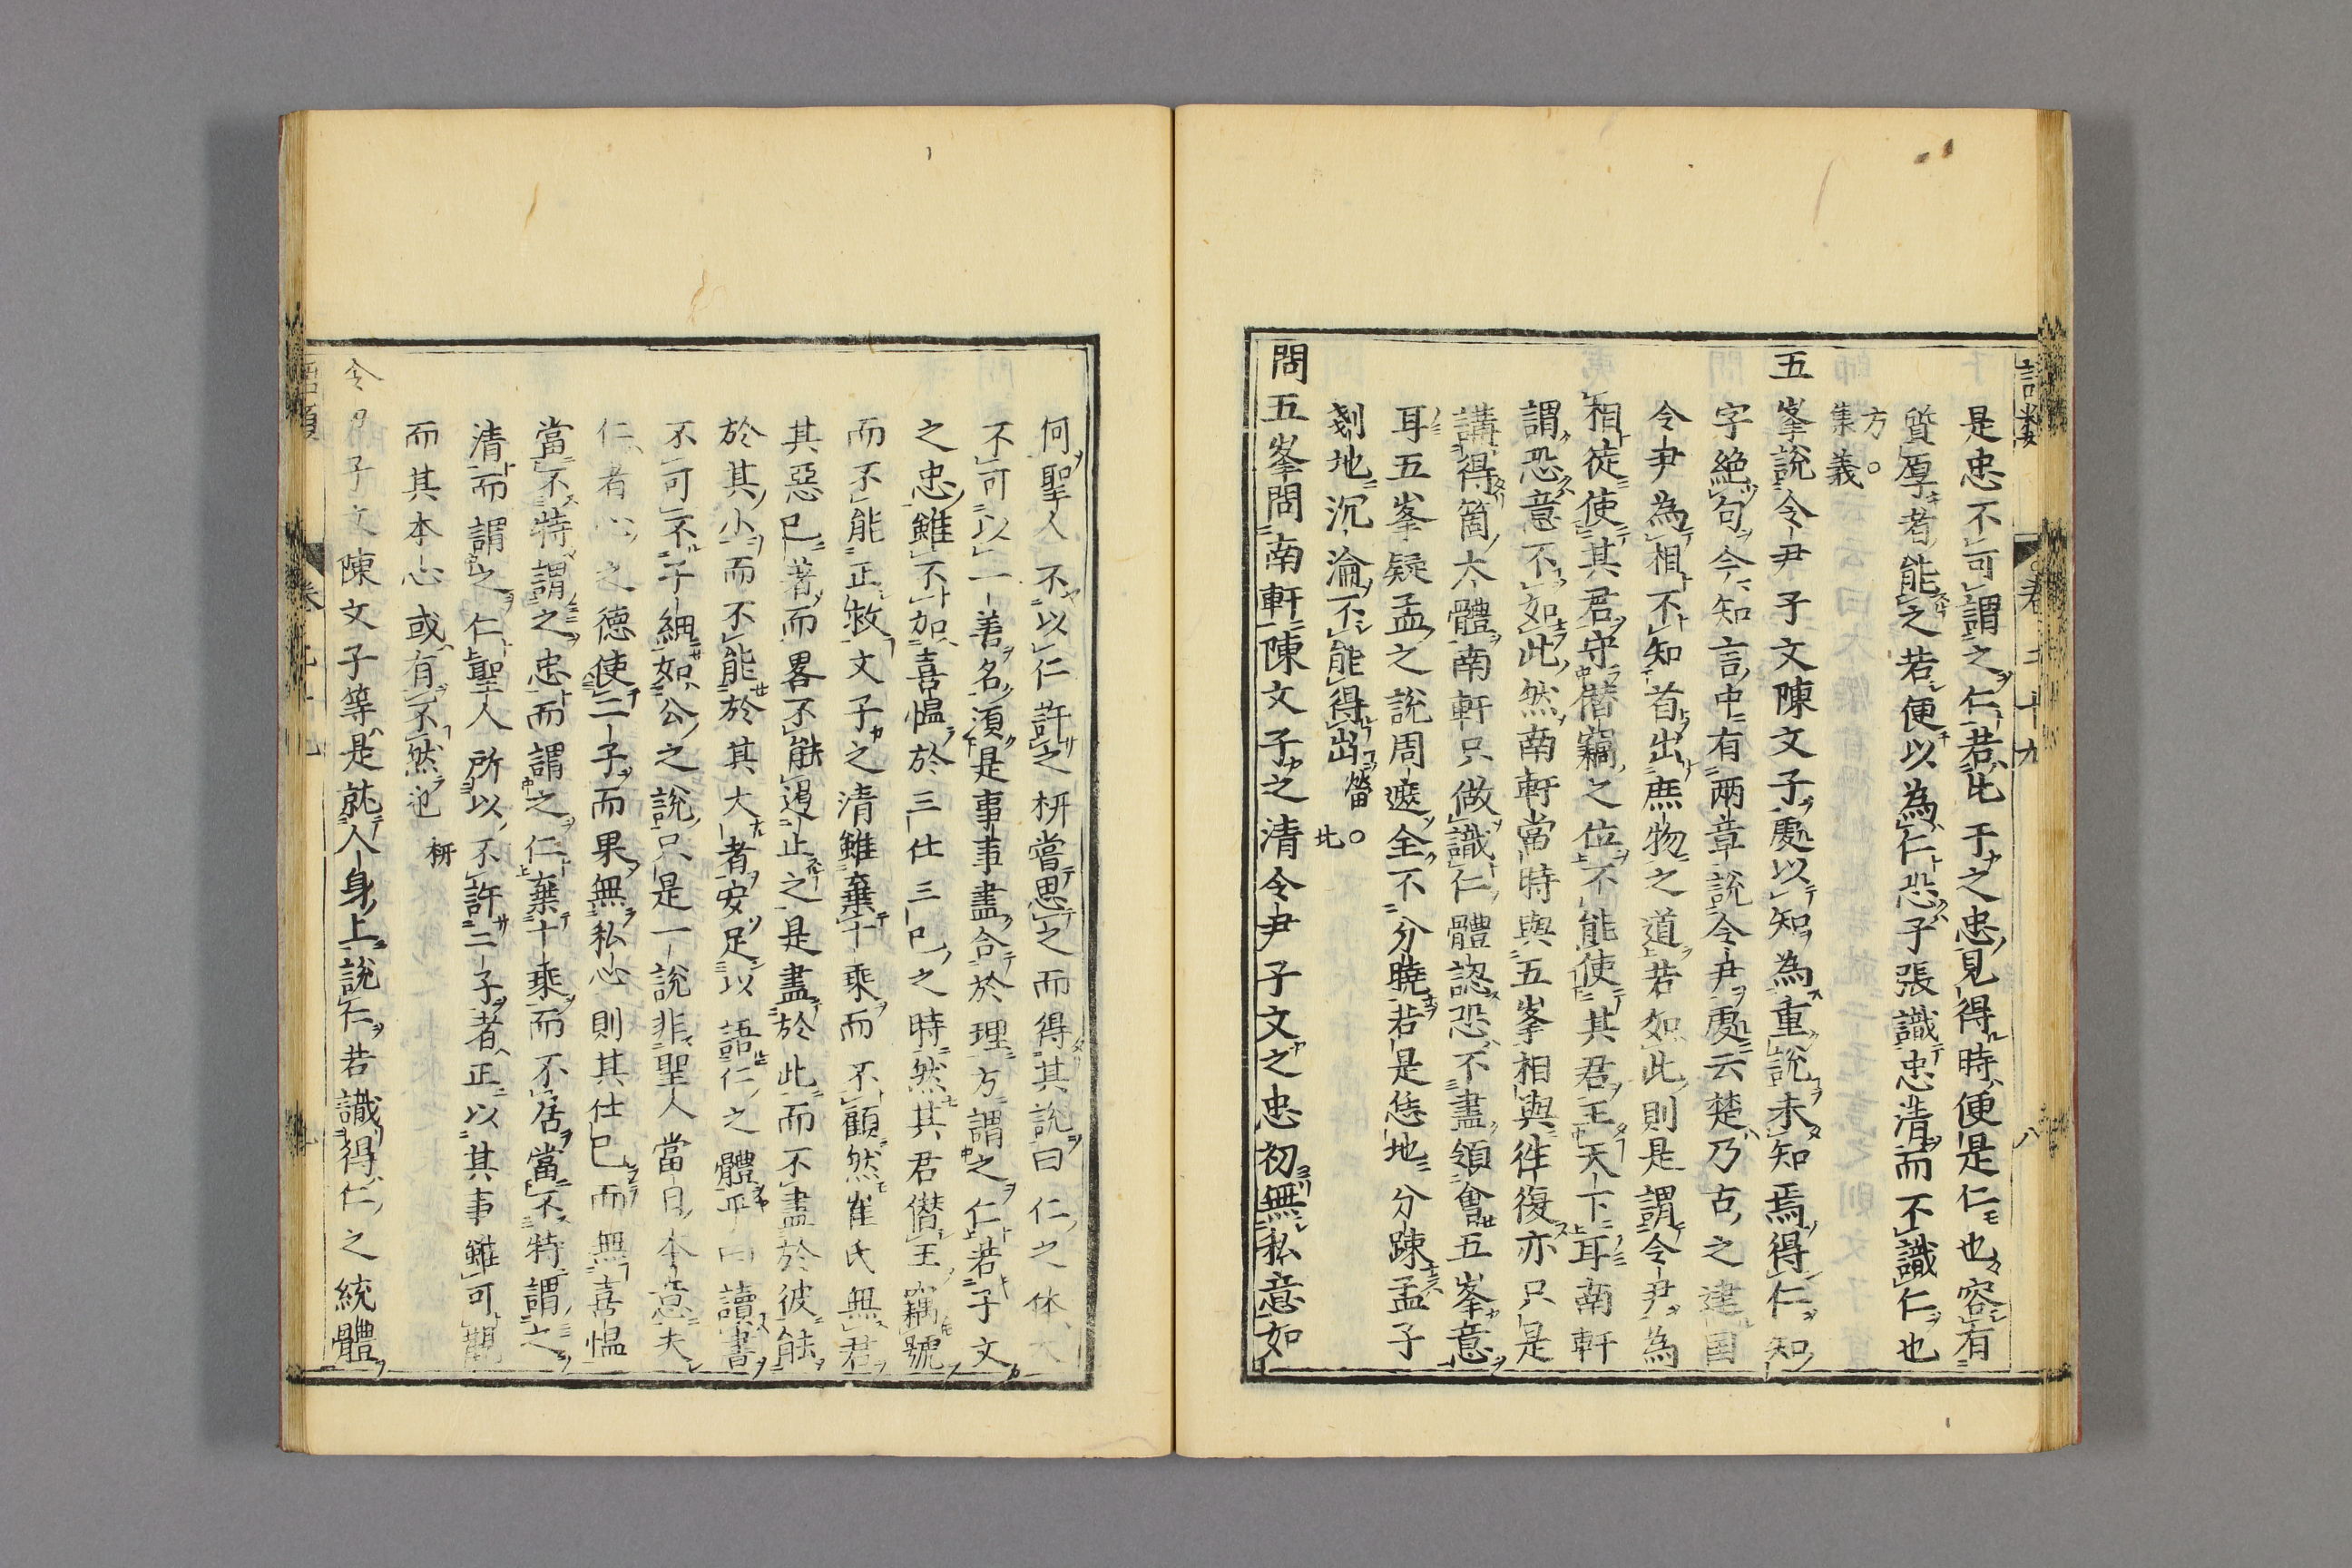 語類 卷二十九 八
是忠不可謂之仁若比干之忠見得時便是仁也容有
質厚者能之若便以為仁恐子張識忠清而不識仁也
方○
集義
五峯說令尹子文陳文子處以知為重說未知焉得仁知
字絕句今知言中有兩章說令尹處云楚乃古之建國
令尹為相不知首出庶物之道若如此則是謂令尹為
相徒使其君守僭竊之位不能使其君王天下耳南軒
謂恐意不如此然南軒當時與五峯相與徃復亦只是
講得箇大體南軒只做識仁體認恐不盡領會五峯意
耳五峯疑孟之說周遮全不分曉若是恁地分踈孟子
剗地沉淪不能得出 㽦○
北
問五峯問南軒陳文子之清令尹子文之忠初無私意如
何聖人不以仁許之枅嘗思之而得其說曰仁之体大
不可以一善名須是事事盡合於理方謂之仁若子文
之忠雖不加喜慍於三仕三已之時然其君僭王竊號
而不能正救文子之清雖棄十乘而不顧然崔氏無君
其惡已著而畧不能遏止之是盡於此而不盡於彼能
於其小而不能於其大者安足以語仁之體乎曰讀書
不可不子細如公之說只是一說非聖人當日本意夫
仁者心之德使二子而果無私心則其仕已而無喜慍
當不特謂之忠而謂之仁棄十乘而不居當不特謂之
清而謂之仁聖人所以不許二子者正以其事雖可觀
而其本心或有不然也 枅
令尹子文陳文子等是就人身上說仁若識得仁之統體
語類 卷